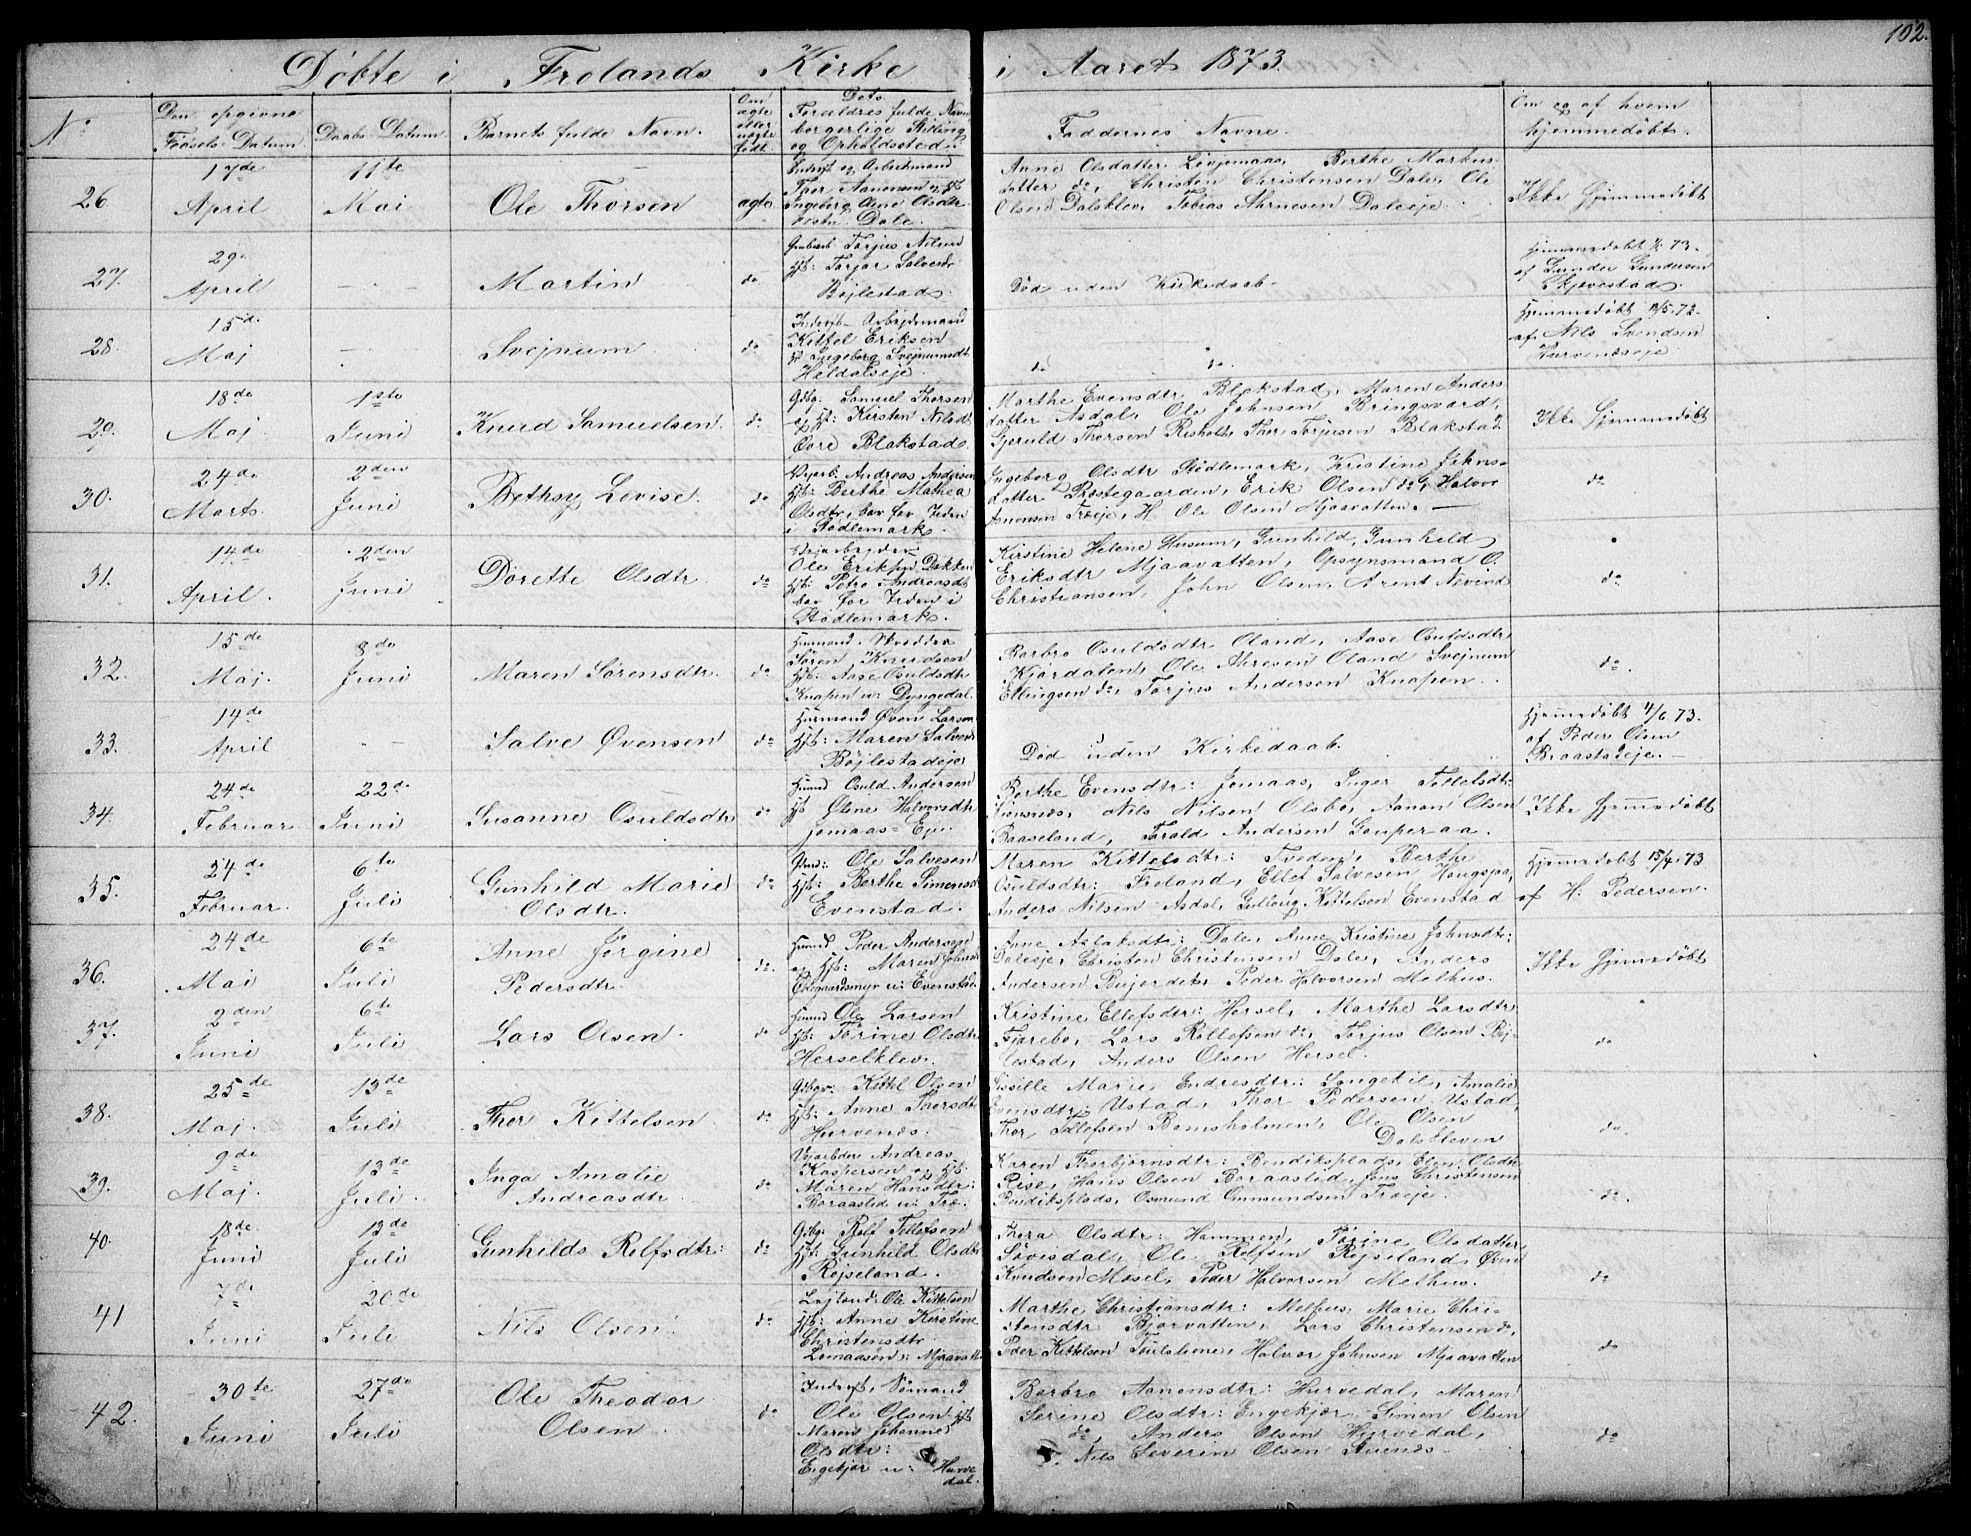 102.
Døbte i Frolands Kirke i Aaret 1873.
No
Den opgivne Fødsels Datum.
Daabs Datum.
Barnets fulde Navn.
Om ægte eller uægte født.
Dets Forældres fulde Navn borgerlige Stilling og Opholdssted.
Faddernes Navne.
Om og af hvem hjemmedøbt.
26.
17de April
11te Mai
Ole Thorsen
ægte
Inderst og Arbeidsmand
Thor Aanonsen
Ingeborg Olsdtr
Dale.
Anne Olsdatter Berthe Markus-
datter do, Christen Christensen Dale, Ole
Olsen Dalsklev, Tobias Daleeje.
Ikke Hjemmedøbt
27.
29de April
Martin
do
Torjus Nilsen
Hst: Torjor Salvesdtr
Bøjlestad.
Død uden Kirkedaab.
Hjemmedøbt 73.
af Gunder Gundersen
Skjævestad.
28.
15de Maj
Svejnum
do
Arbejdsmand
Kittel Eriksen
Ingeborg Svejnumsdt
Heldalseje.
do do.
Hjemmedøbt
af Nils Svendsen
29.
18de Maj.
1ste Juni
Knud Samuelsen.
do.
Gbg. Samuel Thorsen
og Hst: Kirsten Nilsdt
Øvre Blakstad.
Marthe Evensdtr Blakstad, Maren Anders
datter Asdal, Ole Johnsen Bringsværd,
Gjeruld Thorsen Risholt, Thor Torjusen Blakstad
Ikke Hjemmedøbt
30.
24de Marts.
2den Juni
Bethsy Lovise.
do
Vejarb. Andreas Andersen
Hst: Berthe Mathea
Olsdtr, bor for Tiden
i Stødlemark.
Ingeborg Olsdtr Stødlemark, Kristine Johns-
datter Præstegaarden, Erik Olsen do, Halvor
Aanonsen Træeje, H. Ole Olsen Mjaavatten.
do
31.
14de April.
2den Juni
Dorette Olsdtr.
do
Vejarbejder
Ole Eriksen Dakken
Hst: Petra Andreasdt
bor for Tiden i
Stødlemark.
Kirstine Helene Husum, Gunhild
Eriksdtr Mjaavatten, Opsynsmand O.
Christiansen, John Olsen, Arent
do
32.
15de Maj.
8de Juni
Maren Sørensdtr.
do
Husmand, Skrædder
Søren Knudsen
Hst: Aase Osuldsdtr
Knapen u: Dyngedal.
Barbro Osuldsdtr Oland, Aase Osuldsdtr
Ole Oland Svejnum
Ellingsen do, Torjus Andersen Knapen.
do.
33.
14de April
Salve Øvensen
do
Husmand Øven Larsen
Hst: Maren
Bøjlestadeje
Død uden Kirkedaab.
Hjemmedøbt 4/6 73.
af Peder Olsen
Braastadeje.
34.
24de Februar.
22de Juni
Susanne Osuldsdtr
do
Husmd Osuld Andersen
Hst Olene Halvorsdtr
Jomaas-Eje.
Berthe Evensdtr: Jomaas, Inger Tellefsdtr:
Nils Nilsen Olsbo, Aanon Olsen
Baaseland, Torald Andersen
Ikke Hjemmedøbt
35.
24de Februar.
6te Juli
Gunhild Marie
Olsdtr.
do
Ole Salvesen
Hst: Berthe Simensd
Evenstad.
Maren Kittelsdtr: Tveden, Berthe
Osuldsdtr: Froland, Ellef Salvesen
Anders Nilsen Asdal, Kittelsen Evenstad
Hjemmedøbt 15/4 73
af H. Pedersen.
36.
24de Mai
6te Juli
Anne Jørgine
Pedersdtr.
do.
Husmd Peder Andersen
og Hst: Maren Johnsd
Ødegaardsmyr u: Evenstad
Anne Aslaksdtr: Dale, Anne Kristine Johnsdtr:
Daleeje, Christen Christensen Dale, Anders
Andersen Peder Halvorsen Melhus.
Ikke Hjemmedøbt
37.
2den Juni
6te Juli
Lars Olsen.
do
Husmd Ole Larsen
Hst: Torine Olsdtr
Herselklev.
Kristine Ellefsdtr: Hersel, Marthe Larsdtr
Lars Rollefsen do, Torjus Olsen Bøj-
lestad, Anders Olsen Hersel.
do
38.
25de Maj.
13de Juli
Thor Kittelsen
do
Kittel Olsen
Hst: Anne Thorsdt
Hurvenes.
Sissille Marie Endresdtr: Songetil, Amalie
Evensdtr Ustad, Thor Pedersen Ustad,
Thor Tellefsen Bomsholmen, Ole Olsen
Dalskleven
do
39.
9de Maj.
13de Juli.
Inga Amalie
Andreasdtr.
do
Vejarbder Andreas
Kaspersen og Hst:
Maren Hansdtr:
Boraasted u: Træ.
Karen Thorbjørnsdtr: Bendiksplads, Elen Olsdtr
Rise, Hans Olsen Boraasted, Jens Christensen
Bendiksplads, Osmund Gunmundsen Træeje.
do.
40.
18de Juni
13de Juli
Gunhilds Rolfsdtr:
do
Gbg: Rolf Tellefsen
Hst: Gunhild Olsdt
Rejseland.
Thora Olsdtr: Hammen, Torine Olsdatter
Løvesdal, Ole Rolfsen Rejseland, Øven
Knudsen Mosel, Peder Halvorsen Melhus.
do
41
7de Juni
20de Juli
Nils Olsen
do
Lejlænd: Ole Kittelsen
Hst: Anne Kirstine
Christensdtr
u: Mjaavatt
Marthe Christiansdtr: Melhus, Marie Chri-
stensdtr: Bjorvatten, Lars Christensen do,
Peder Kittelsen Halvor Johnsen Mjaavatten
do
42.
30te Juni
27de Juli
Ole Theodor
Olsen.
do
Inderst, Sømand
Ole Olsen Hst
Maren Johanne
Olsdtr:
Engekjær u: Hurve
dal.
Barbro Aanonsdtr: Hurvedal, Maren
Serine Olsdtr: Engekjær, Simon Olsen
do, Anders Olsen Hurvedal,
Nils Severin Olsen
do